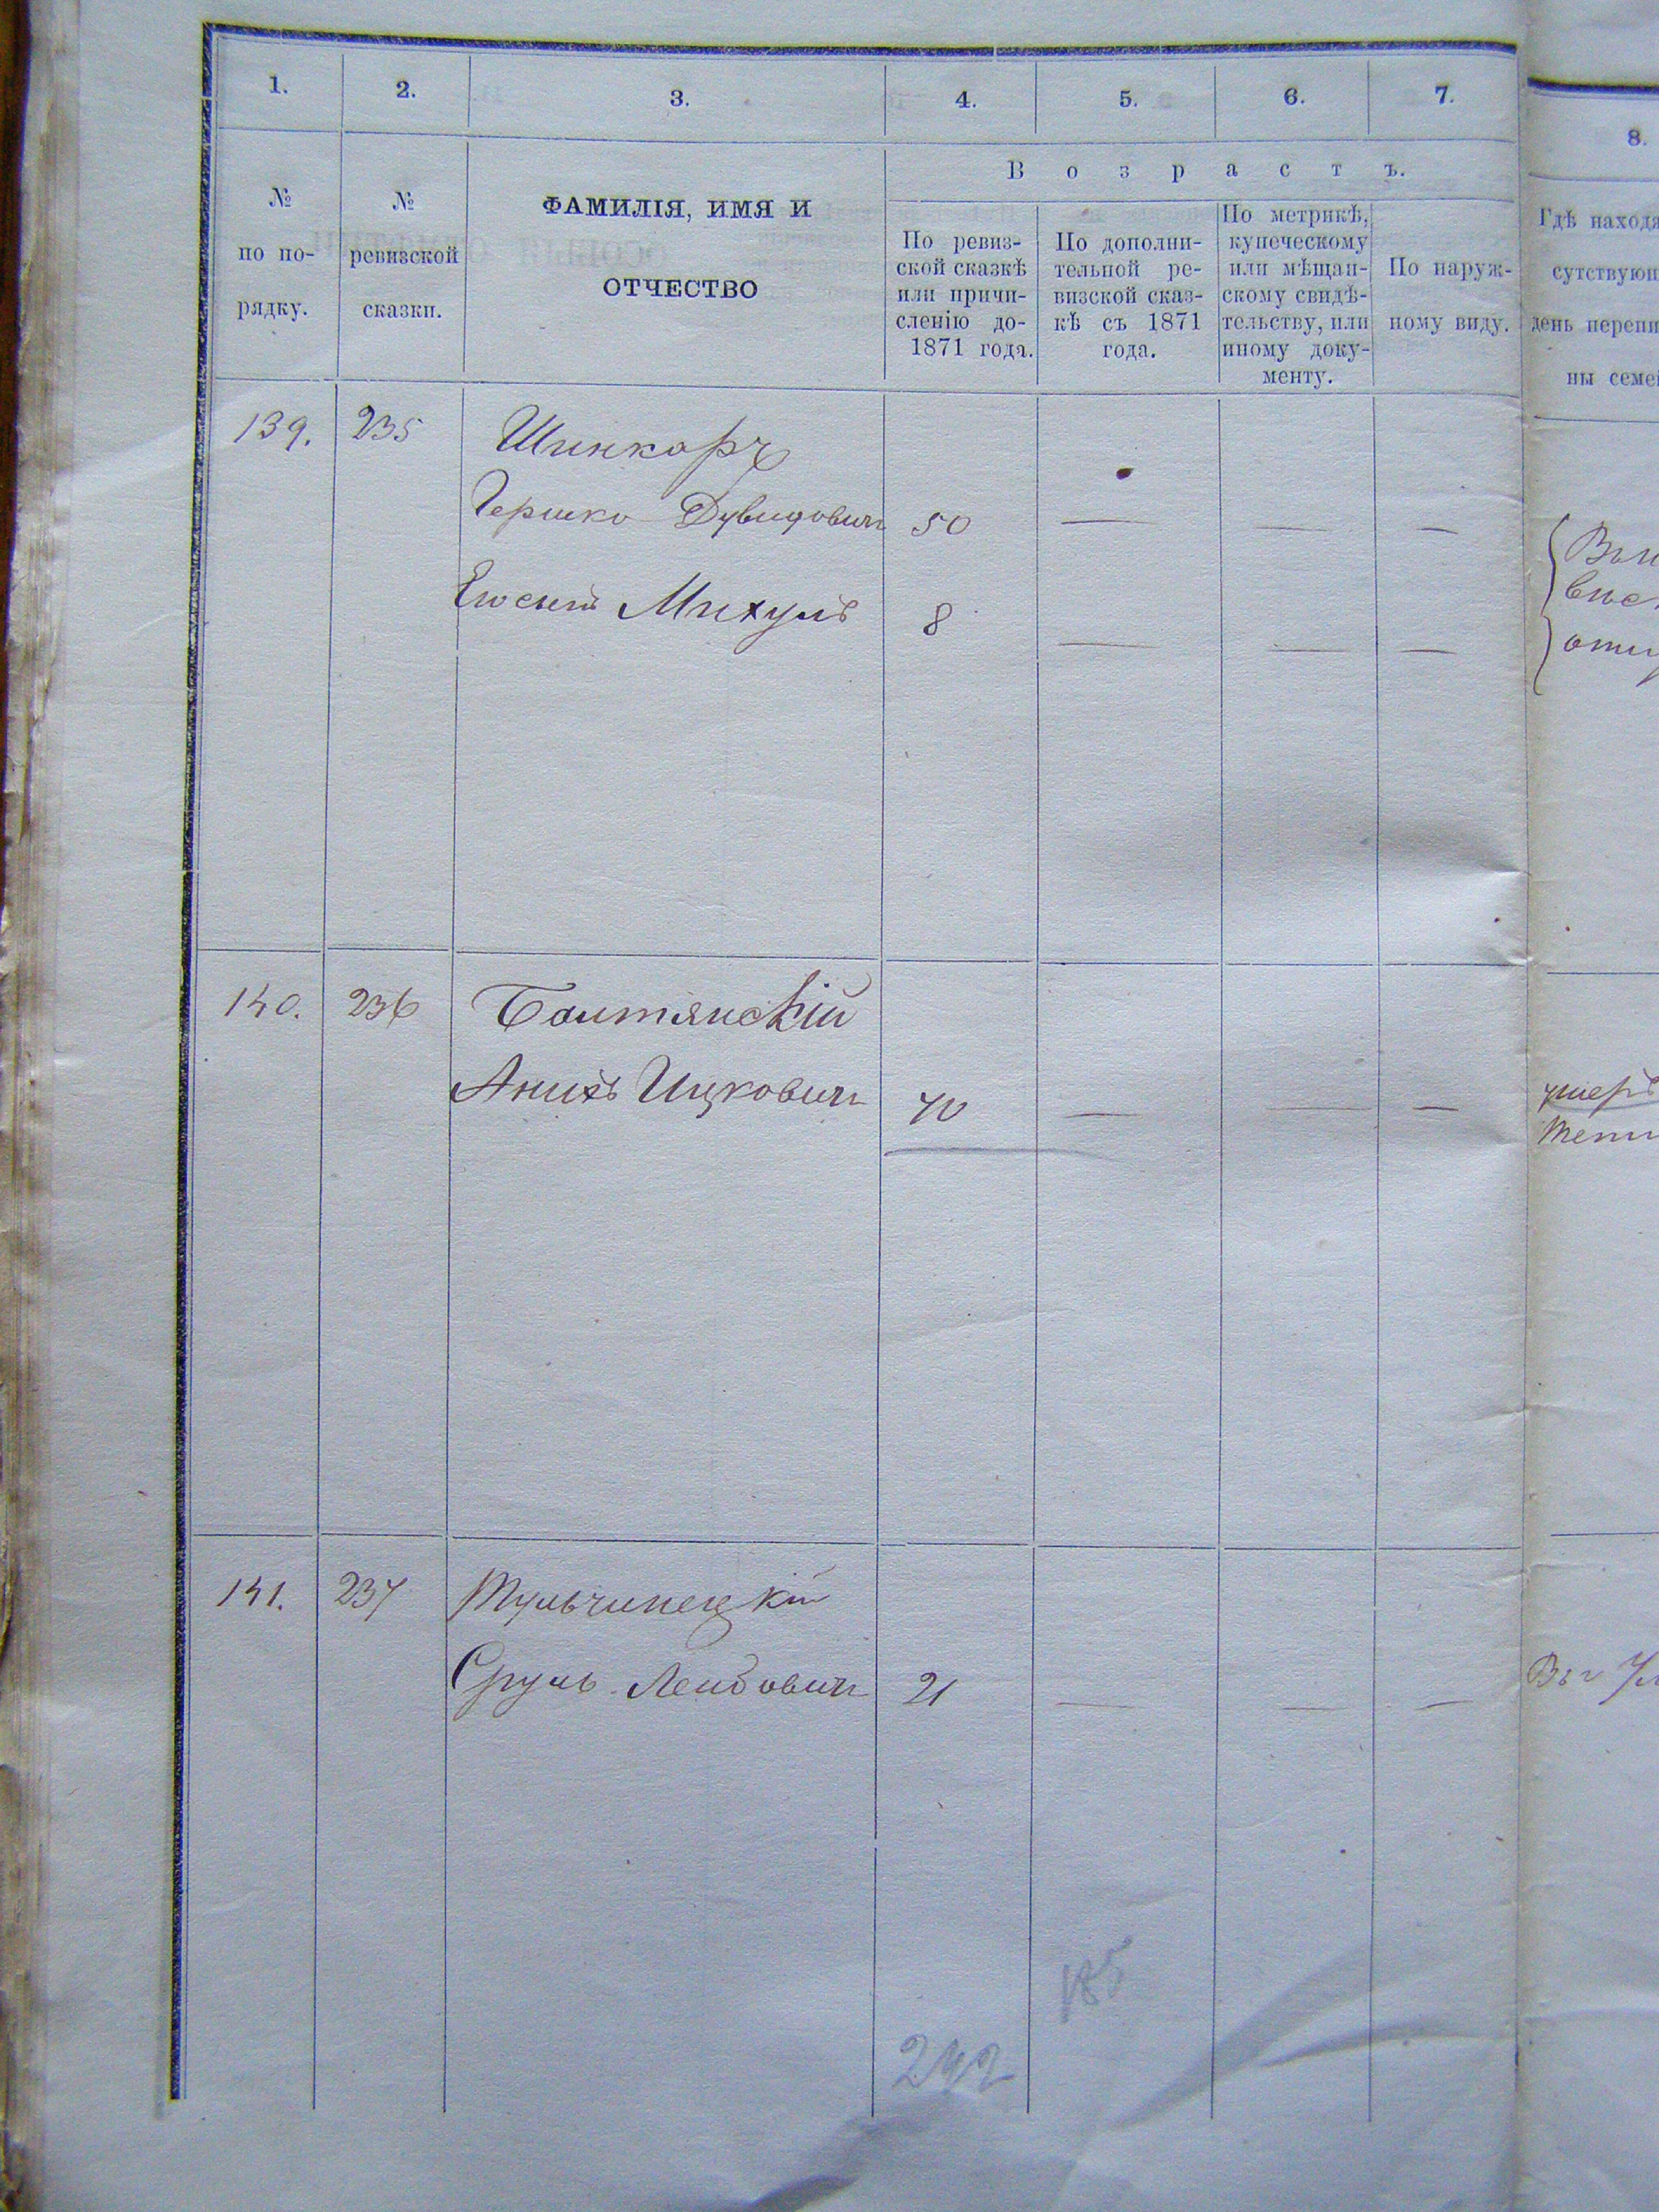 1. 2. 3. 4. 5. 6. 7. 8.
В о з р а с т ъ.
№
по по-
рядку.
№
ревизской
сказки.
ФАМИЛІЯ, ИМЯ И
ОТЧЕСТВО
По ревиз-
ской сказкѣ
или причи-
сленію до
1871 года.
По дополни-
тельной ре-
визской сказ-
кѣ съ 1871
года.
По метрикѣ,
купеческому
или мѣщан-
скому свидѣ-
тельству, или
иному доку-
менту.
По наруж-
ному виду.
Гдѣ находя
сутствующ
день переп
ны семе
139. 235 Шинкарь
Гершко Дувидович 50 — — —
Его сынъ Михуль 8 — — —
140. 236 Балтянскій
Ицкович 70 — — —
умеръ
141. 237 Тульчинецкій
Сруль Лейбович 21 — — —
185
242